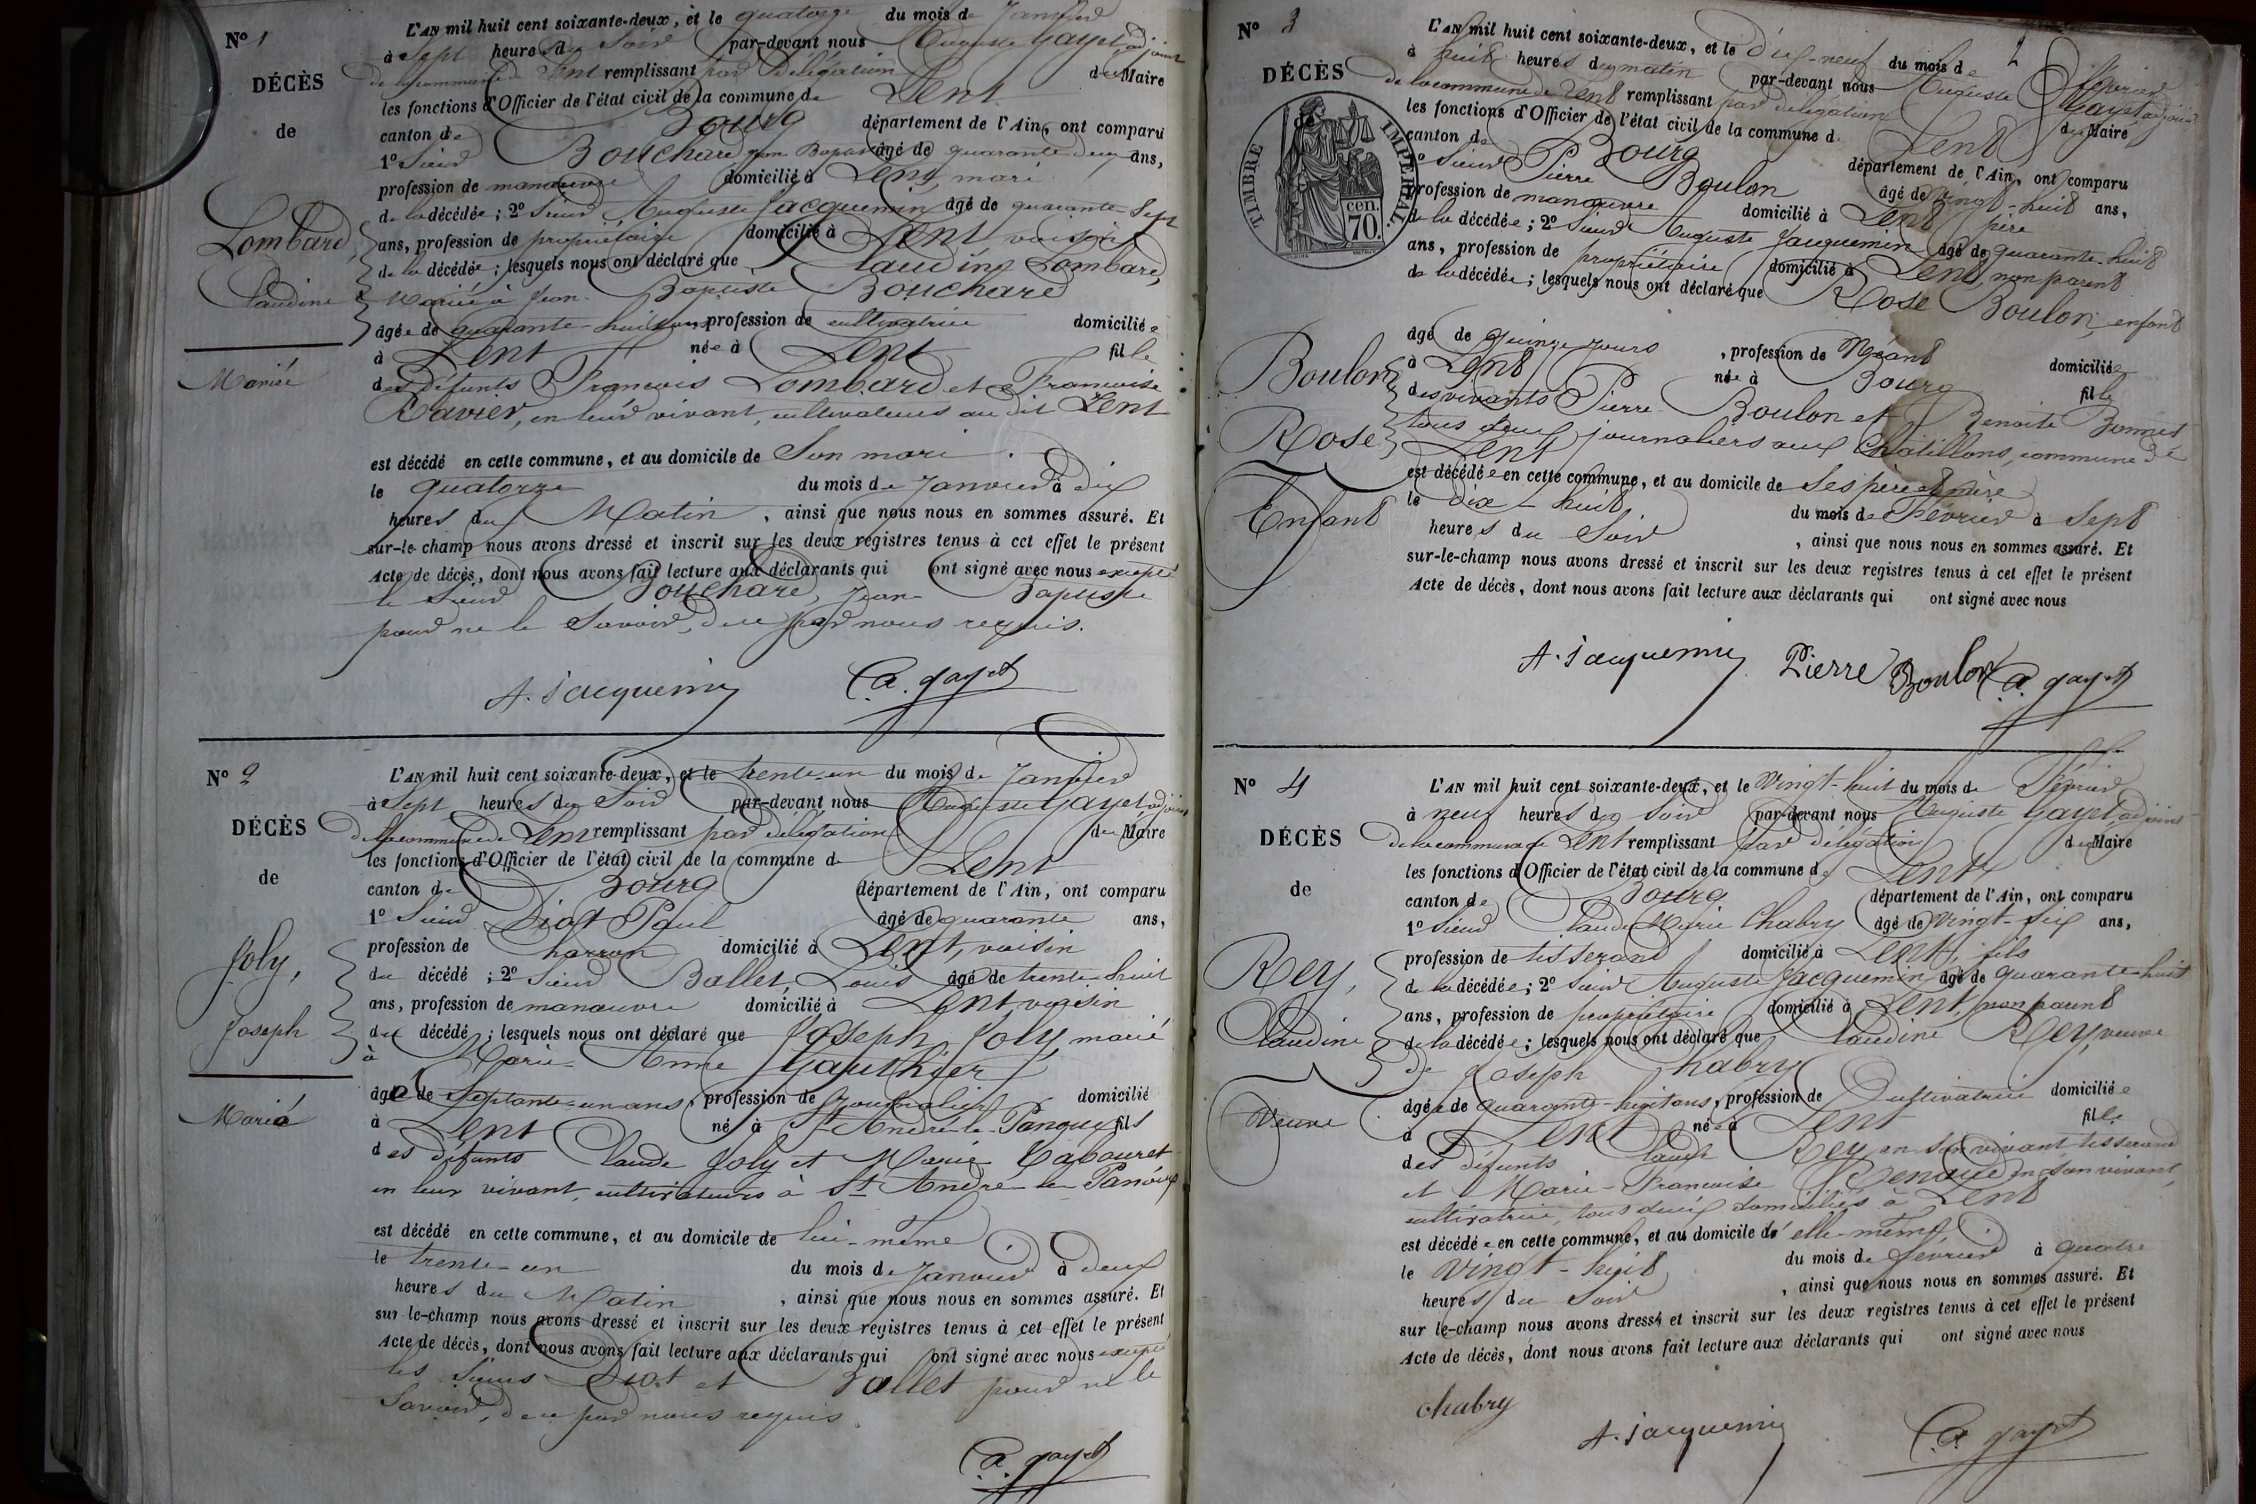 N° 1
DÉCÈS
de
Lombard,
Claudine
Mariée
L'AN mil huit cent soixante-deux, et le quatorze du mois de Janvier
à Sept heures du Soir par-devant nous Auguste Gayet, adjoint
de la commune de Lent remplissant par délégation du Maire
les fonctions d'Officier de l'état civil de la commune de Lent
canton de Bourg département de l'Ain, ont comparu
1° Sieur Bouchard Jean Baptiste âgé de quarante deux ans,
profession de manœuvre domicilié à Lent, mari
de la décédée; 2° Sieur Auguste Jacquemin âgé de quarante-Sept
ans, profession de propriétaire domicilié à Lent, voisin
de la décédée; lesquels nous ont déclaré que Claudine Lombard,
Mariée à Jean-Baptiste Bouchard
âgée de quarante-huit ans, profession de cultivatrice domiciliée
à Lent née à Lent fille
des défunts François Lombard et Françoise
Ravier, en leur vivant, cultivateurs au dit Lent
est décédé en cette commune, et au domicile de Son mari.
le quatorze du mois de Janvier à dix
heures du Matin, ainsi que nous nous en sommes assuré. Et
sur-le-champ nous avons dressé et inscrit sur les deux registres tenus à cet effet le présent
Acte de décès, dont nous avons fait lecture aux déclarants qui ont signé avec nous excepté
le Sieur Bouchard, Jean-Baptiste
pour ne le Savoir, de ce par nous requis.
A. Jacquemin
A. gayet
N° 2
DÉCÈS
de
Joly,
Joseph
Marié
L'AN mil huit cent soixante-deux, et le trente-un du mois de Janvier
à Sept heures du Soir par-devant nous Auguste Gayet adjoint
de la commune de Lent remplissant par délégation du Maire
les fonctions d'Officier de l'état civil de la commune de Lent
canton de Bourg département de l'Ain, ont comparu
1° Sieur Diot Paul âgé de quarante ans,
profession de charron domicilié à Lent, voisin
du décédé; 2° Sieur Ballet, Louis âgé de trente-huit
ans, profession de manœuvre domicilié à Lent, voisin
du décédé; lesquels nous ont déclaré que Joseph Joly marié
à Marie-Anne Gauthier
âgé de Septante-un ans, profession de Journalier domicilié
à Lent né à St André-le-Panoux fils
des défunts Claude Joly et Marie Cabouret
en leur vivant, cultivateurs à St André-le-Panoux
est décédé en cette commune, et au domicile de lui-même
le trente-un du mois de Janvier à deux
heures du Matin, ainsi que nous nous en sommes assuré. Et
sur le-champ nous avons dressé et inscrit sur les deux registres tenus à cet effet le présent
Acte de décès, dont nous avons fait lecture aux déclarants qui ont signé avec nous excepté
les Sieurs Diot et Ballet pour ne le
Savoir, de ce par nous requis.
A. gayet
2
N° 3
DÉCÈS
de
TIMBRE IMPÉRIAL
70. cen.
Boulon
Rose
Enfant
L'AN mil huit cent soixante-deux, et le dix-neuf du mois de février
à huit heures du matin par-devant nous Auguste Gayet adjoint
de la commune de Lent remplissant par délégation du Maire
les fonctions d'Officier de l'état civil de la commune de Lent
canton de Bourg département de l'Ain, ont comparu
1° Sieur Pierre Boulon âgé de vingt-huit ans,
profession de manœuvre domicilié à Lent père
de la décédée; 2° Sieur Auguste Jacquemin âgé de quarante-huit
ans, profession de propriétaire domicilié à Lent, non parent
de la décédée; lesquels nous ont déclaré que Rose Boulon, enfant
âgé de quinze jours, profession de Néant domiciliée
à Lent née à Bourg fille
des vivants Pierre Boulon et Benoite Bonnet
tous deux journaliers aux Chatillons, commune de
Lent
est décédée en cette commune, et au domicile de Ses père et mère
le dix-huit du mois de Février à Sept
heures du Soir, ainsi que nous nous en sommes assuré. Et
sur-le-champ nous avons dressé et inscrit sur les deux registres tenus à cet effet le présent
Acte de décès, dont nous avons fait lecture aux déclarants qui ont signé avec nous
A. Jacquemin
Pierre Boulon
A. gayet
N° 4
DÉCÈS
de
Rey,
Claudine
Veuve
L'AN mil huit cent soixante-deux, et le Vingt-huit du mois de Février
à neuf heures du Soir par-devant nous Auguste Gayet adjoint
de la commune de Lent remplissant par délégation du Maire
les fonctions d'Officier de l'état civil de la commune de Lent
canton de Bourg département de l'Ain, ont comparu
1° Sieur Claude Marie Chabry âgé de vingt-six ans,
profession de tisserand domicilié à Lent, fils
de la décédée; 2° Sieur Auguste Jacquemin âgé de quarante-huit
ans, profession de propriétaire domicilié à Lent, non parent
de la décédée; lesquels nous ont déclaré que Claudine Rey, veuve
de Joseph Chabry
âgée de quarante-huit ans, profession de Cultivatrice domiciliée
à Lent née à Lent fille
des défunts Claude Rey en son vivant tisserand
et Marie-Françoise en son vivant,
cultivatrice, tous deux domiciliés à Lent
est décédée en cette commune, et au domicile d'elle-même
le Vingt-huit du mois de février à quatre
heures du Soir, ainsi que nous nous en sommes assuré. Et
sur le-champ nous avons dressé et inscrit sur les deux registres tenus à cet effet le présent
Acte de décès, dont nous avons fait lecture aux déclarants qui ont signé avec nous
Chabry
A. Jacquemin
A. gayet